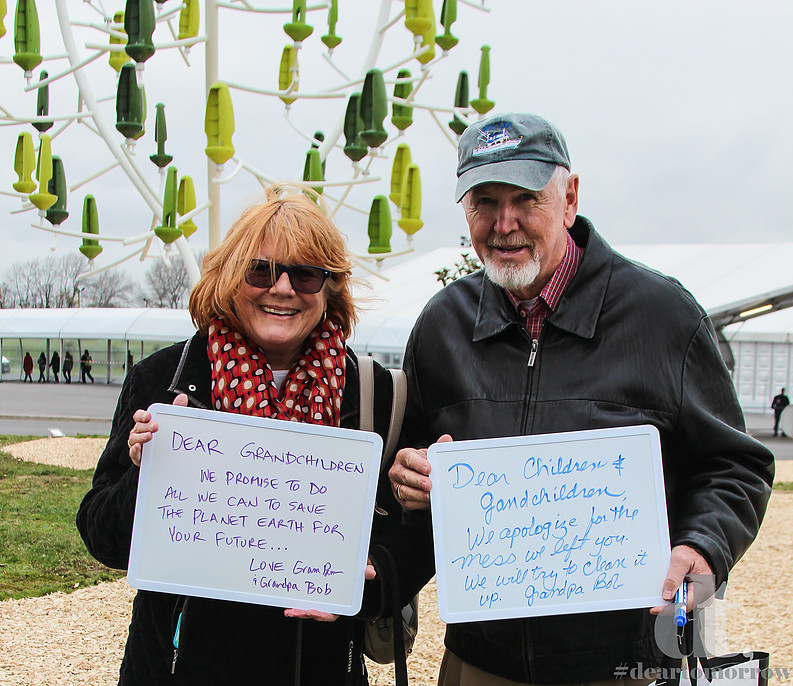 DEAR GRANDCHILDREN
WE PROMISE TO DO
ALL WE CAN TO SAVE
THE PLANET EARTH FOR
YOUR FUTURE...
LOVE Gram Pam
& Grandpa Bob
Dear Children &
gandchildren,
We apologize for the
mess we left you.
We will try to clean it
up. Grandpa Bob
Canon
dt,
#deartomorrow